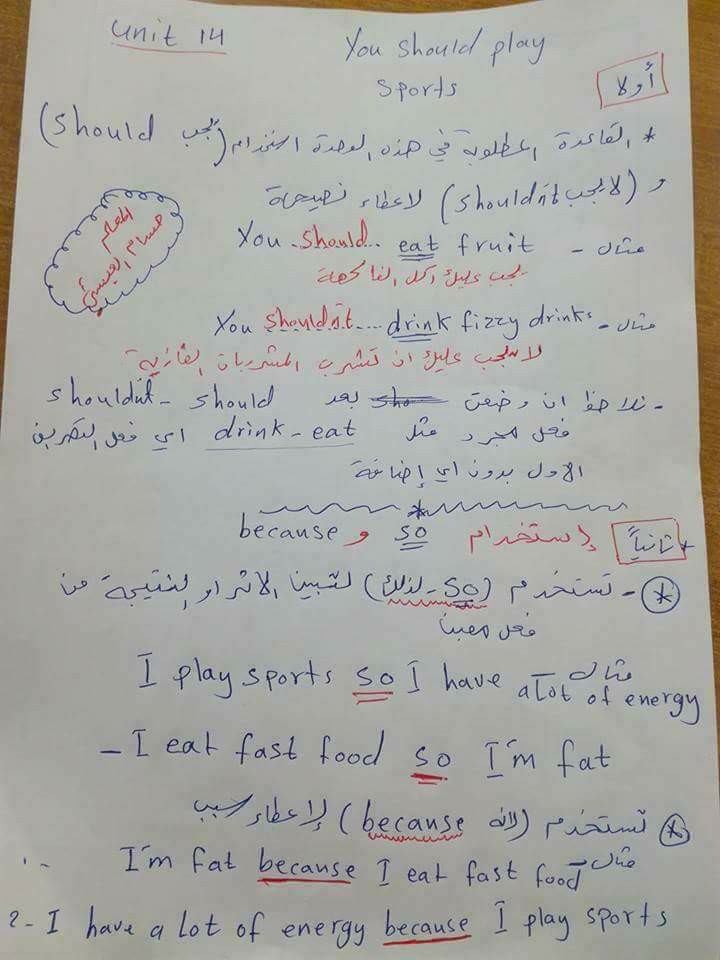 Unit 14
You should play
sports
أولا
* القاعدة المطلوبة في هذه الوحدة استخدام (يجب should)
و (لا يجب shouldn't) لاعطاء نصيحة
المعلم
حسام العيسى
مثال - You should... eat fruit
يجب عليك اكل الفاكهة
مثال - You shouldn't.... drink fizzy drinks
لا يجب عليك ان تشرب المشروبات الغازية
- نلاحظ ان وضعت بعد should - shouldn't
فعل مجرد مثل drink - eat اي فعل التصريف
الاول بدون اي إضافة
* ثانياً إستخدام so و because
* - تستخدم (so - لذلك) لتبين الاثر او النتيجة من
فعل معين
مثال - I play sports so I have a lot of energy
- I eat fast food so I'm fat
* تستخدم (لانه because) لإعطاء سبب
مثال - 1 - I'm fat because I eat fast food
2 - I have a lot of energy because I play sports